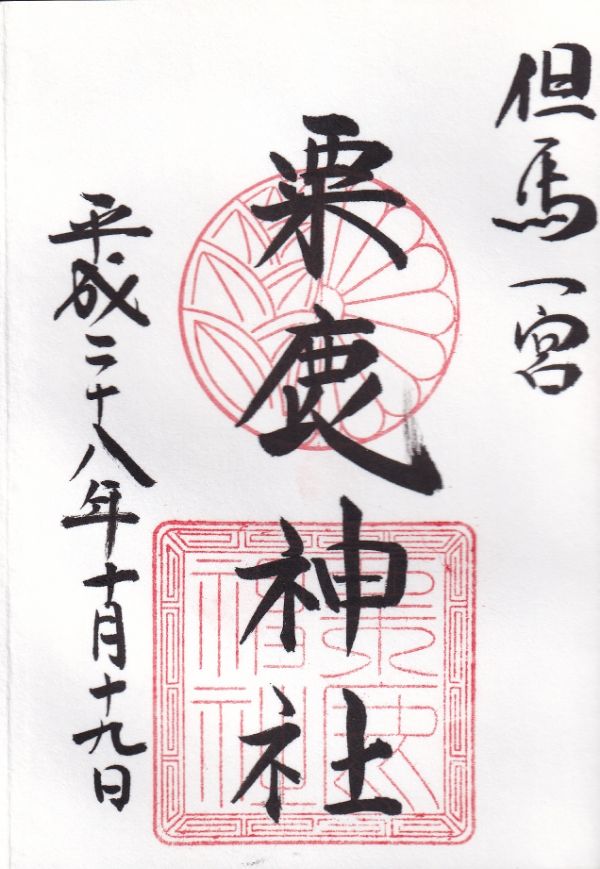 但馬一宮
粟鹿神社
平成二十八年十月十九日
粟鹿神社